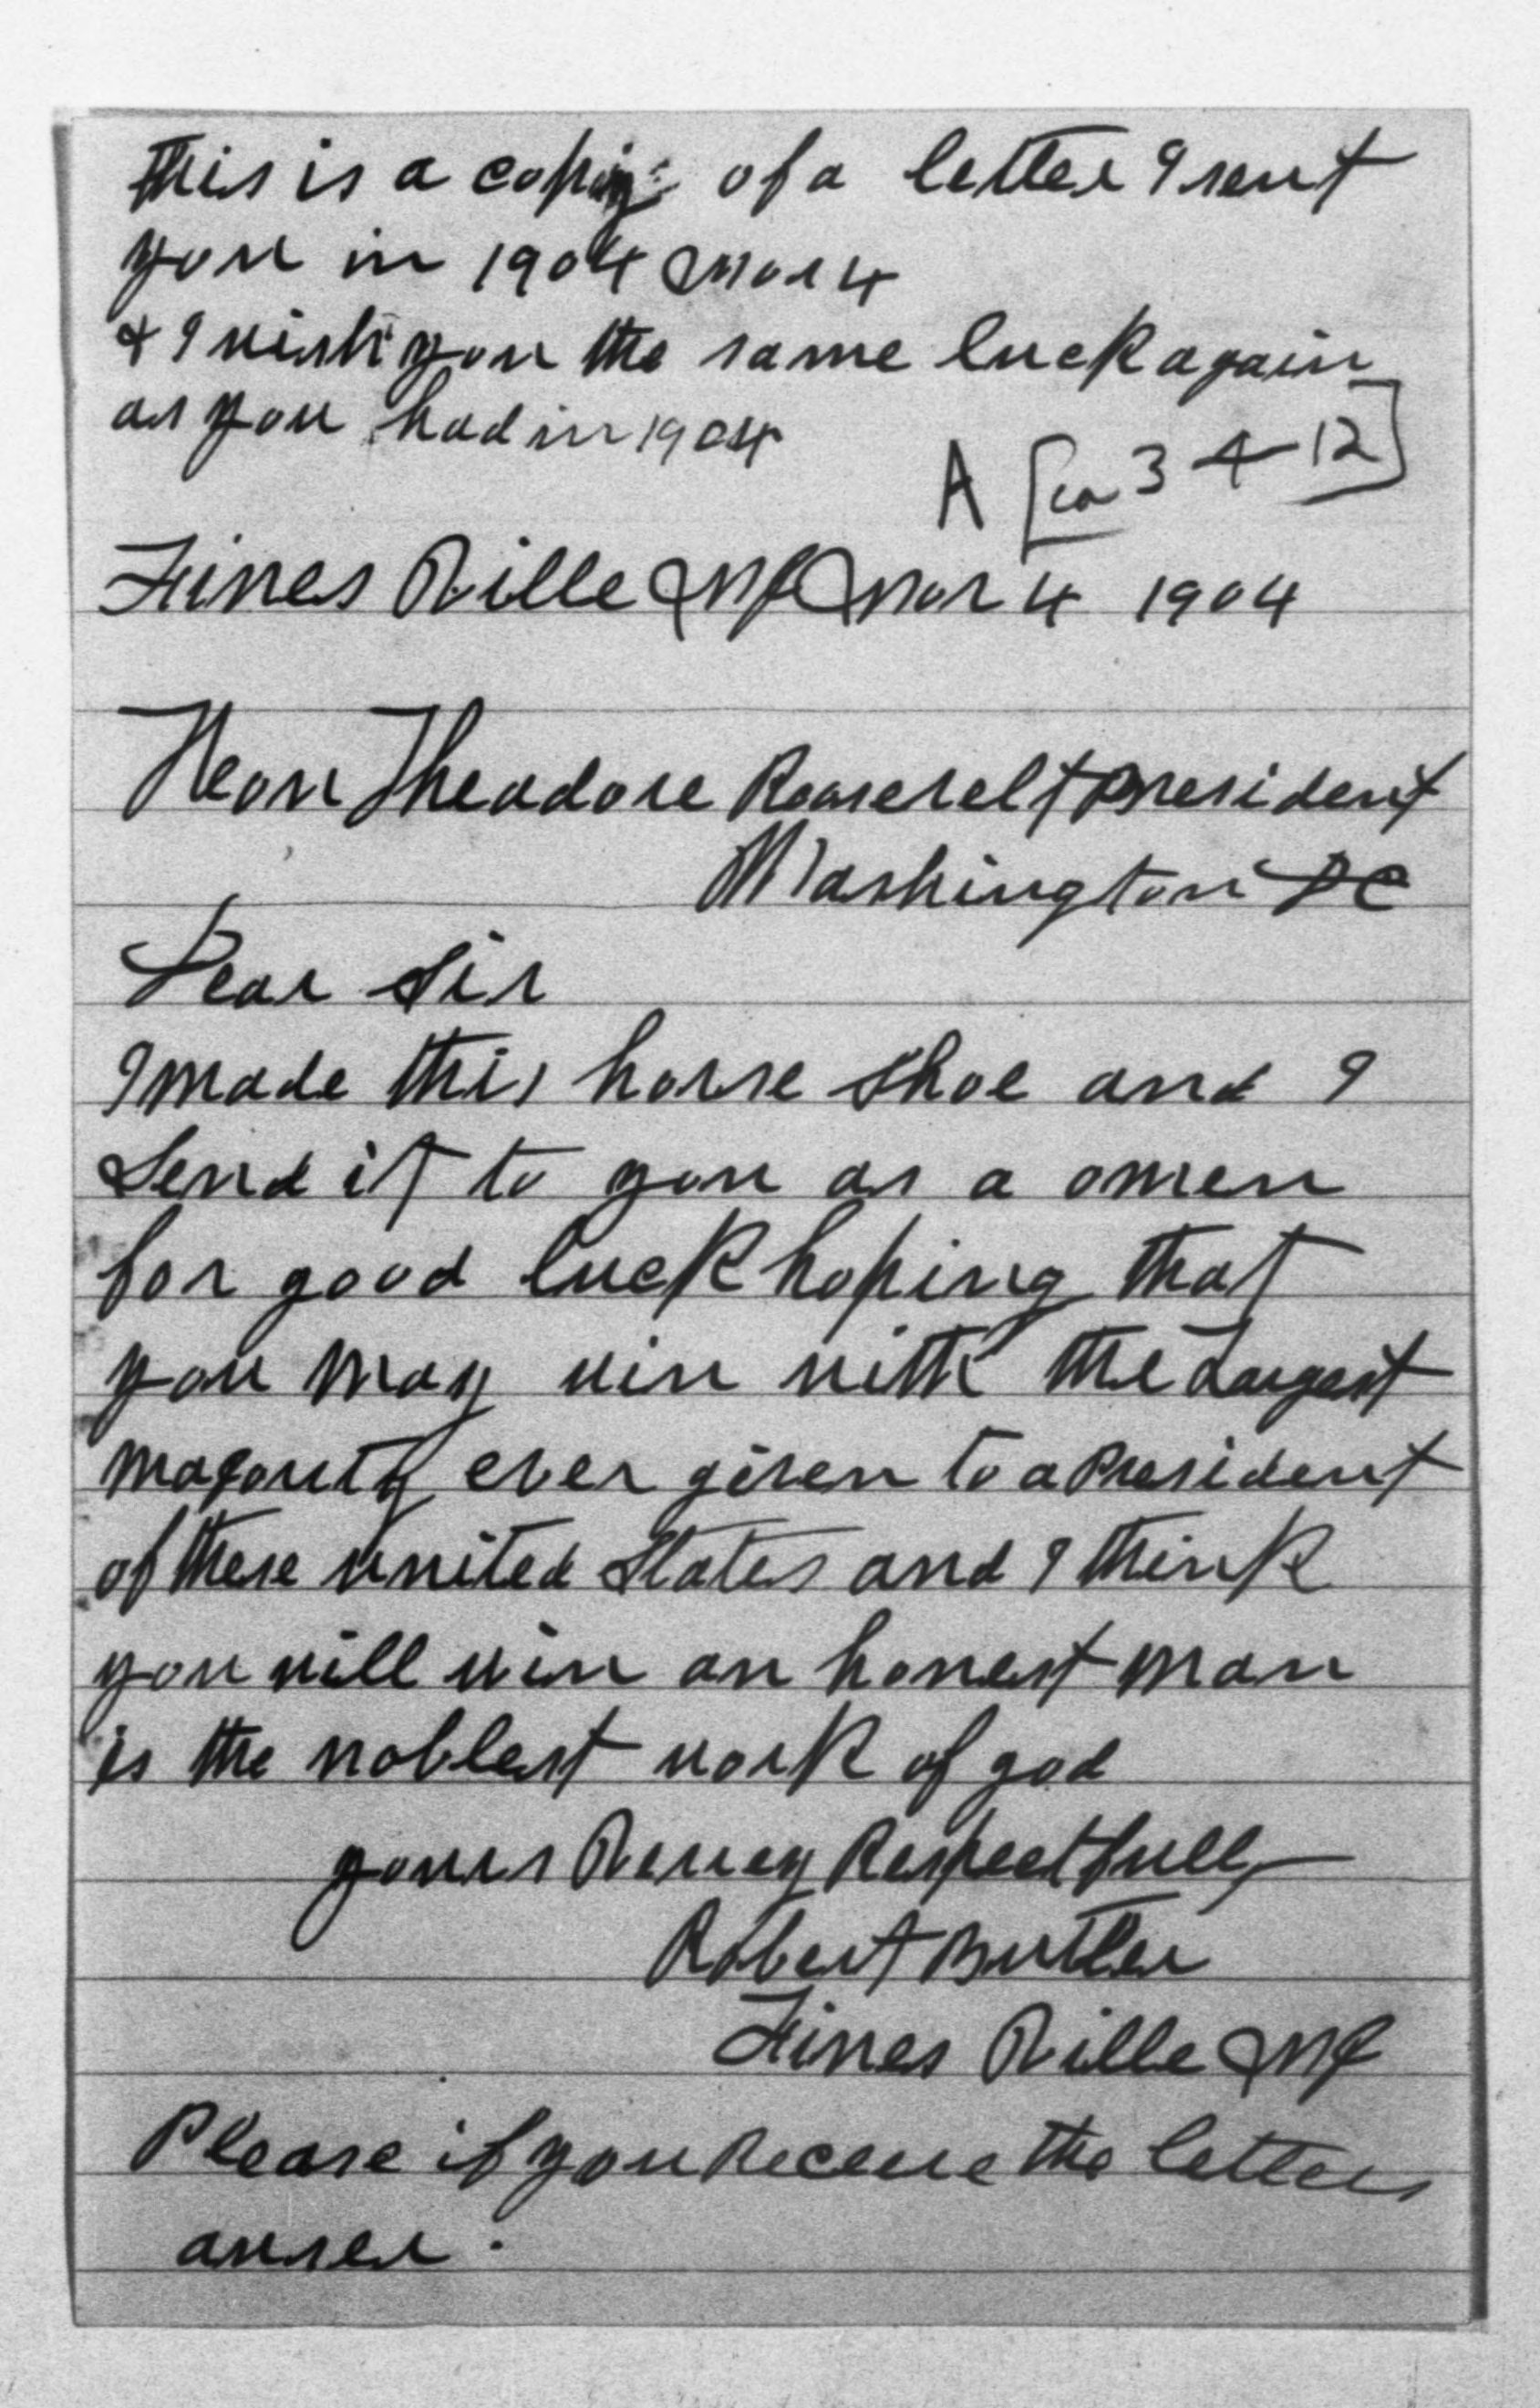 this is a copiy of a letter I sent
you in 1904 Mar 4
& I wish you the same luck again
as you had in 1904
A [ca 3-4-12]
Fines Ville NJ Mar 4 1904
Heon Theadore Roosevelt President
Washington DC
Dear Sir
I made this horse shoe and I
Send it to you as a omen
for good luck hoping that
you may win with the Largest
majourty ever given to a President
of these united States and I think
you will win an honest man
is the noblest work of god
yours Verrey Respectfully
Robert Butler
Fines Ville NJ
Please if you Receive the letters
anser.